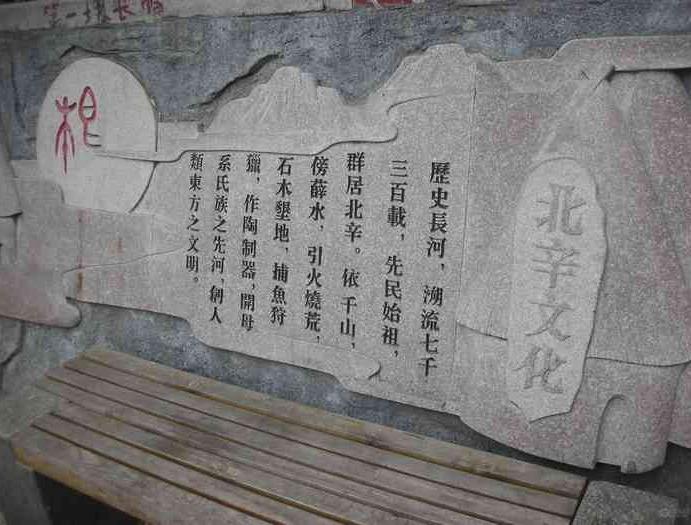 北辛文化
歷史長河，溯流七千
三百載，先民始祖，
群居北辛。依千山，
傍薛水，引火燒荒，
石木墾地，捕魚狩
獵，作陶制器，開母
系氏族之先河，創人
類東方之文明。